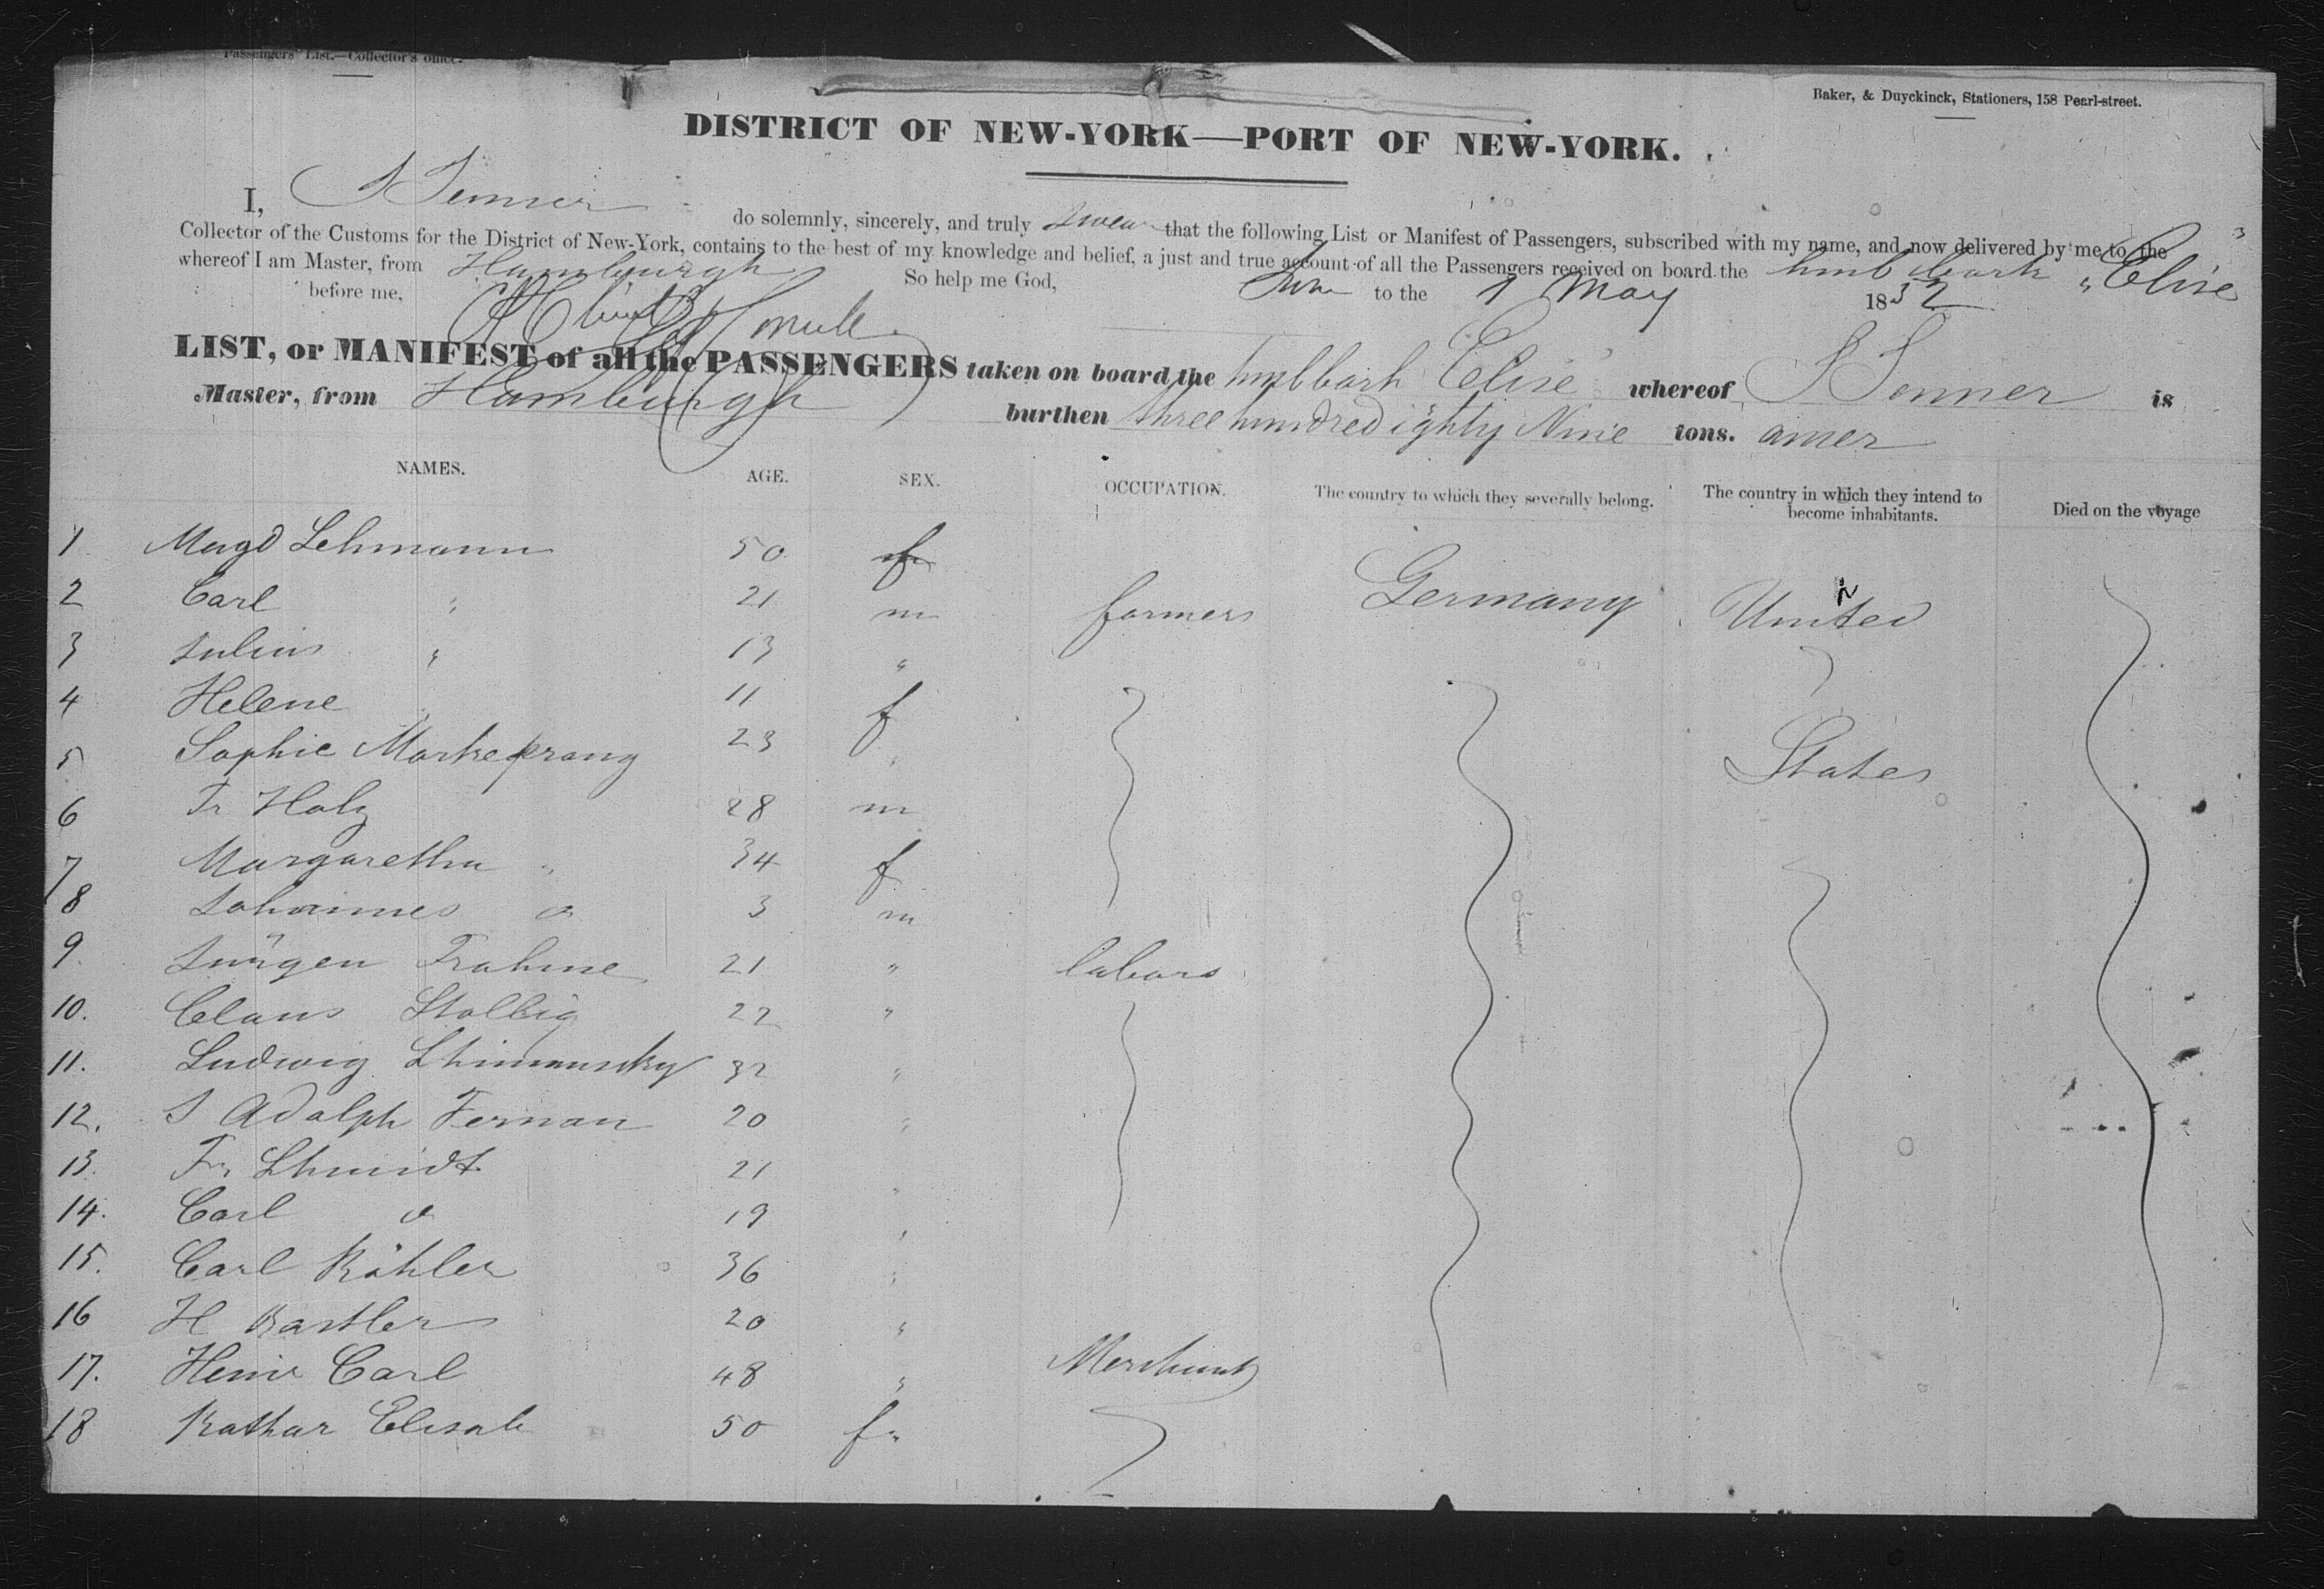 Passengers' List.—Collector's office.
Baker, & Duyckinck, Stationers, 158 Pearl-street.
DISTRICT OF NEW-YORK—PORT OF NEW-YORK.
I, do solemnly, sincerely, and truly swear that the following List or Manifest of Passengers, subscribed with my name, and now delivered by me to the
Collector of the Customs for the District of New-York, contains to the best of my knowledge and belief, a just and true account of all the Passengers received on board the hmb bark "Elise"
whereof I am Master, from Hamburgh
So help me God,
to the 1 May 1852
before me,
LIST, or MANIFEST of all the PASSENGERS taken on board the hmb bark Elise whereof is
Master, from Hamburgh burthen three hundred ighty Nine tons.
NAMES. AGE. SEX. OCCUPATION. The country to which they severally belong. The country in which they intend to become inhabitants. Died on the voyage
1 Magd Lehmann 50 f
2 Carl " 21 m farmers Germany United
3 Julius " 13 "
4 Helene " 11 f
5 Sophie Markeprang 23 " States
6 Fr Holz 28 m
7 Margaretha " 34 f
8 Johannes 3 m
9. Jürgen Frahme 21 " labors
10. Claus 22 "
11. Ludwig 32 "
12. J Adolph Fernau 20 "
13. Fr Shmidt 21 "
14. Carl 19 "
15. Carl Köhler 36 "
16 H 20 "
17. Heinr Carl 48 " Merchant
18 Kathar Elisab 50 f